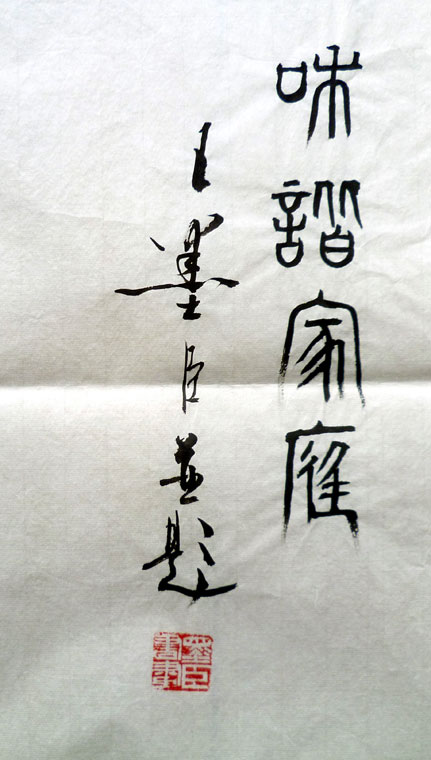 咊諧家庭
王墨臣並題
墨臣